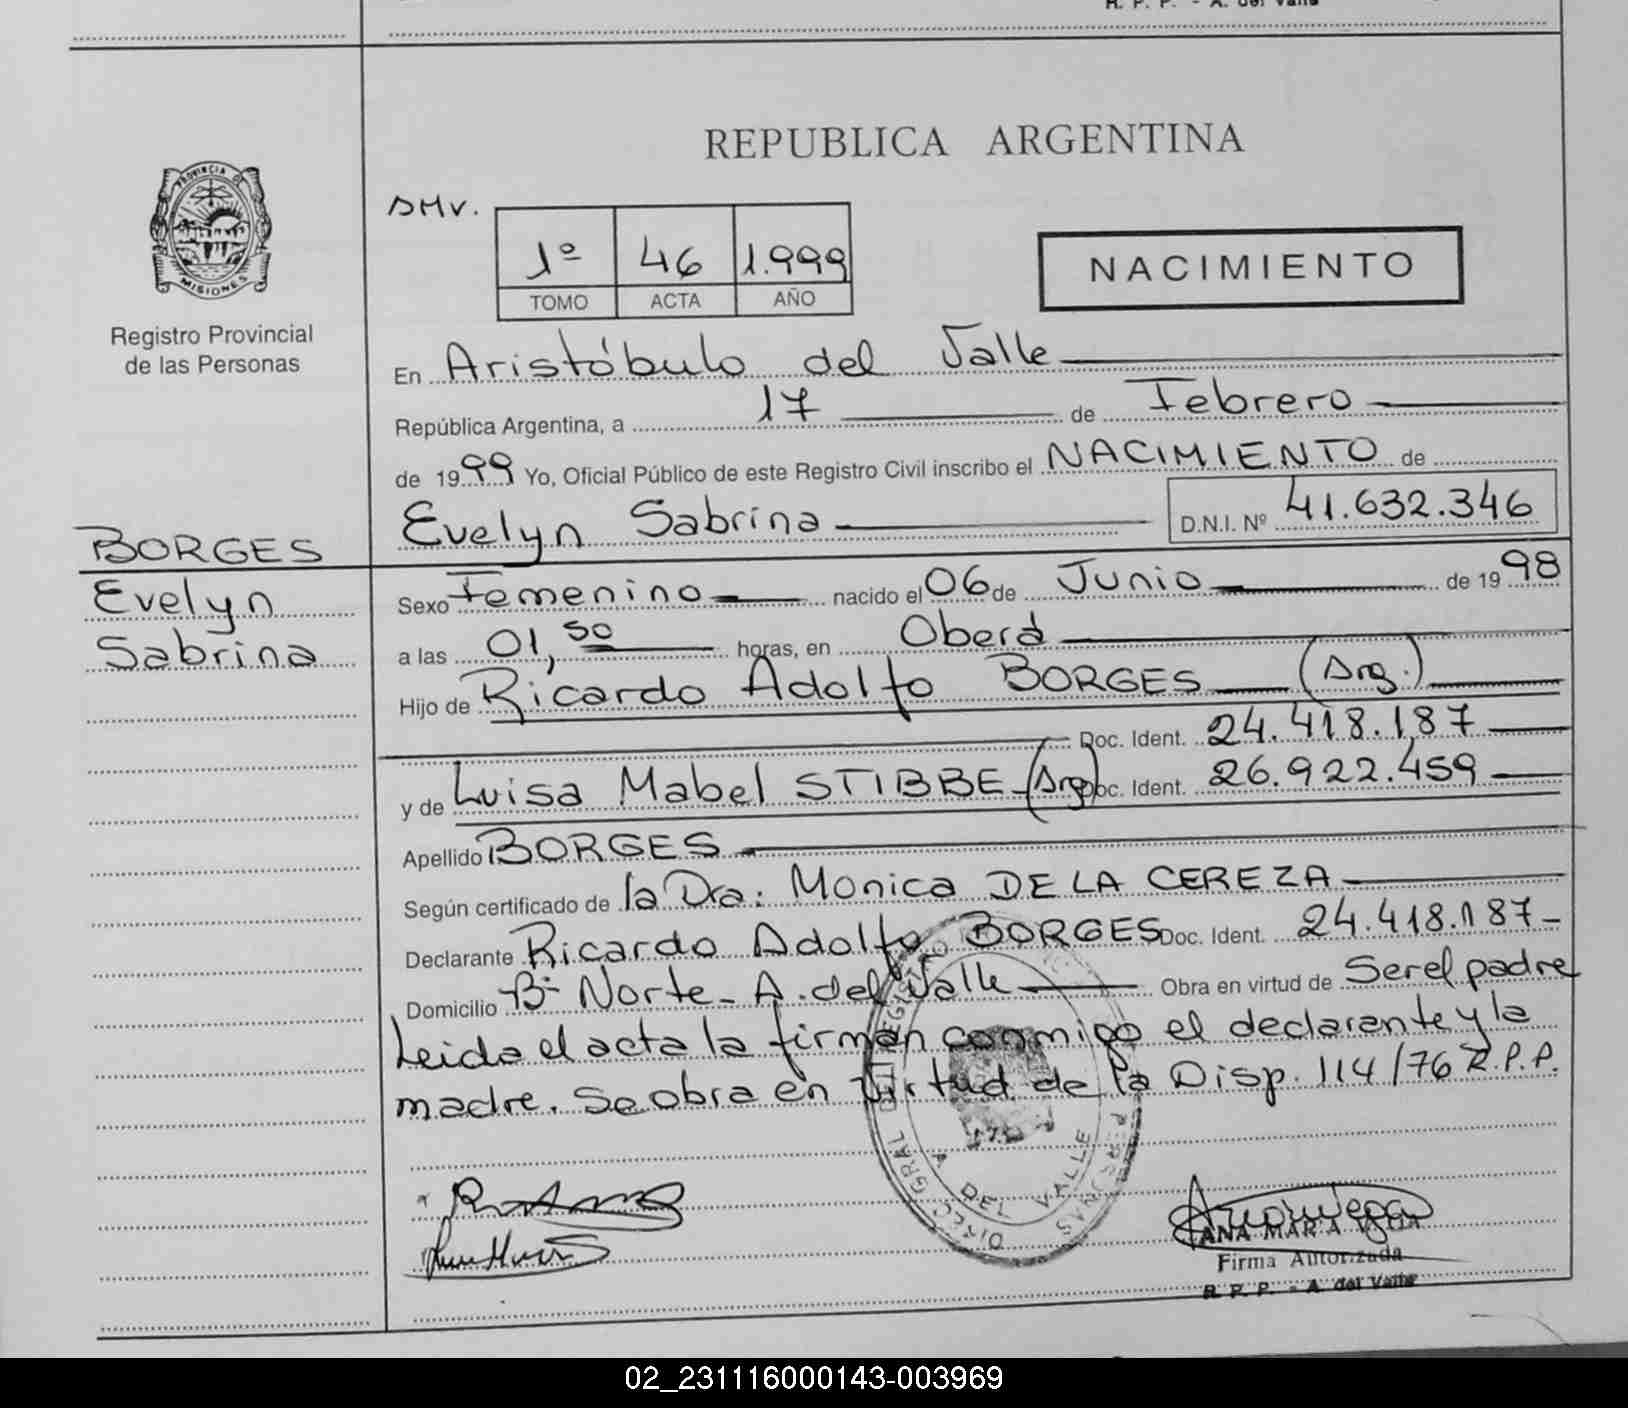 R. P. P. - A. del Valle
REPUBLICA ARGENTINA
PROVINCIA DE
MISIONES
Registro Provincial
de las Personas
DMV.
1º 46 1.999
TOMO ACTA AÑO
NACIMIENTO
En Aristóbulo del Valle
República Argentina, a 17 de Febrero
de 1999 Yo, Oficial Público de este Registro Civil inscribo el NACIMIENTO de
Evelyn Sabrina D.N.I. Nº 41.632.346
BORGES
Evelyn
Sabrina
Sexo Femenino nacido el 06 de Junio de 1998
a las 01,50 horas, en Oberá
Hijo de Ricardo Adolfo BORGES (Arg.)
Doc. Ident. 24.418.187
y de Luisa Mabel STIBBE (Arg) Doc. Ident. 26.922.459
Apellido BORGES
Según certificado de la Dra: Monica DE LA CEREZA
Declarante Ricardo Adolfo BORGES Doc. Ident. 24.418.187-
Domicilio Bº Norte - A. del Valle Obra en virtud de Ser el padre
Leida el acta la firman conmigo el declarante y la
madre. Se obra en virtud de la Disp. 114/76 R.P.P.
A. DEL VALLE
ANA MARIA
Firma Autorizada
R. P. P. - A. del Valle
02_231116000143-003969